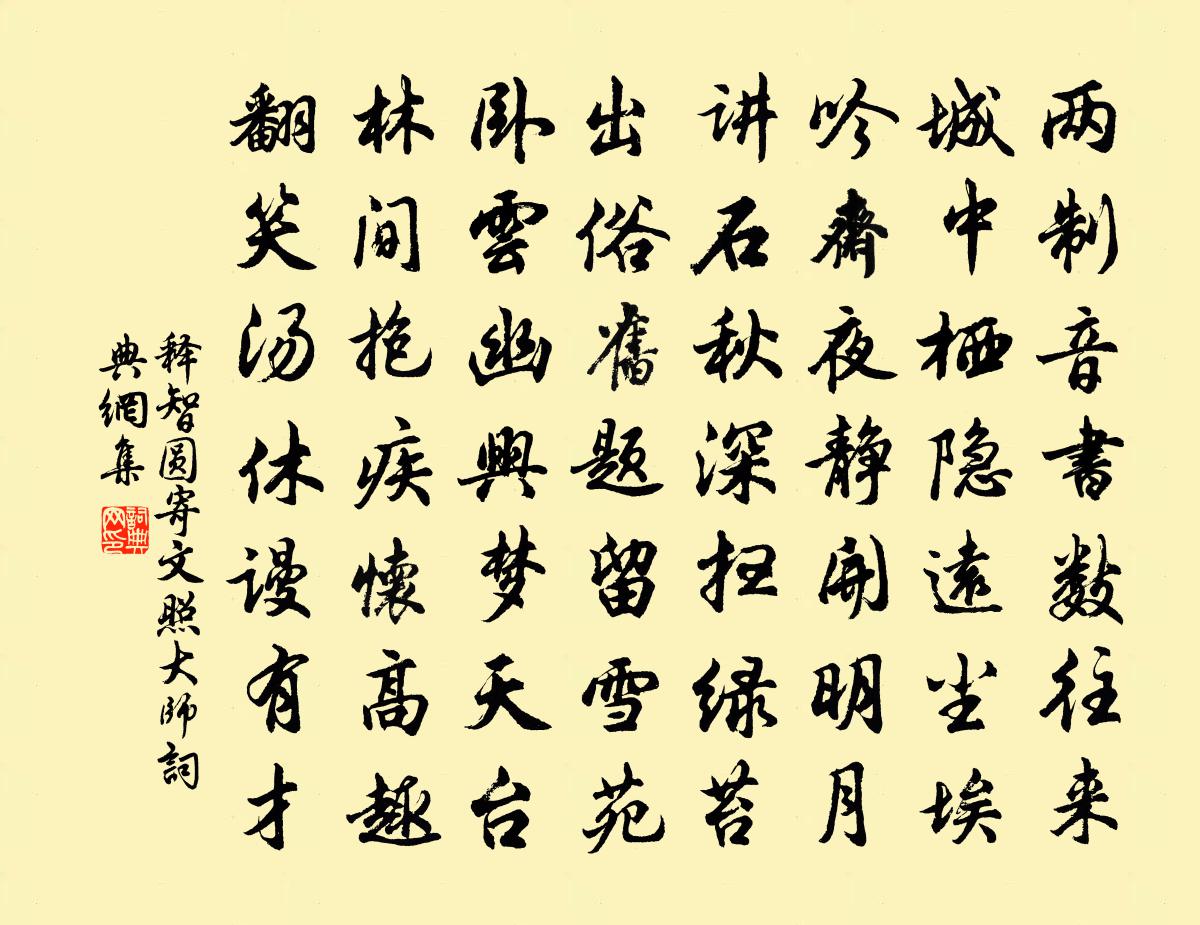 两制音書数往来
城中栖隐遠尘埃
吟斎夜静開明月
讲石秋深扫绿苔
出俗舊题留雪苑
卧雲幽興梦天台
林间抱疾懷高趣
翻笑汤休谩有才
释智圆寄文照大师詞
典網集
詞典
网印